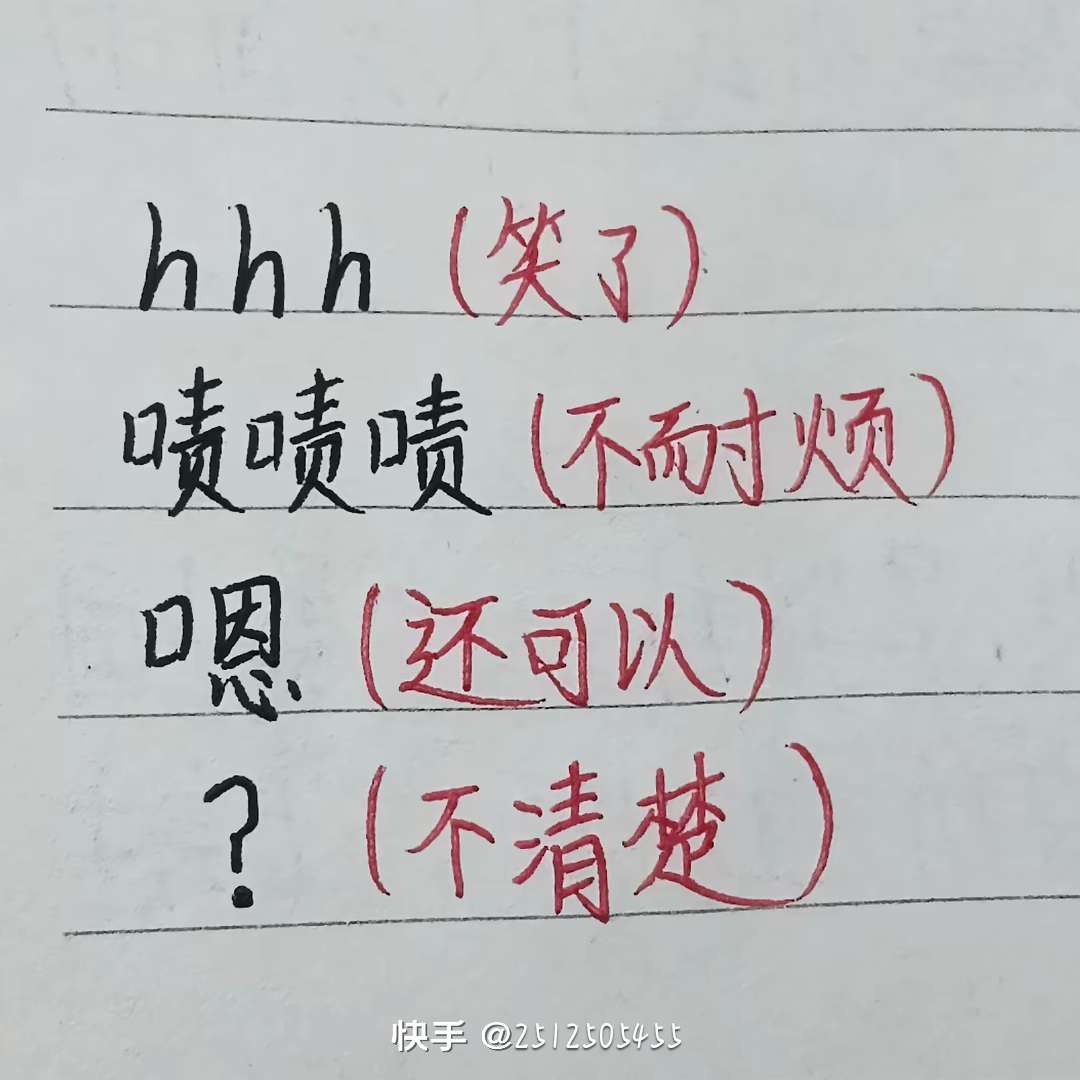 hhh (笑了)
啧啧啧 (不耐烦)
嗯 (还可以)
? (不清楚)
快手 @2512505455